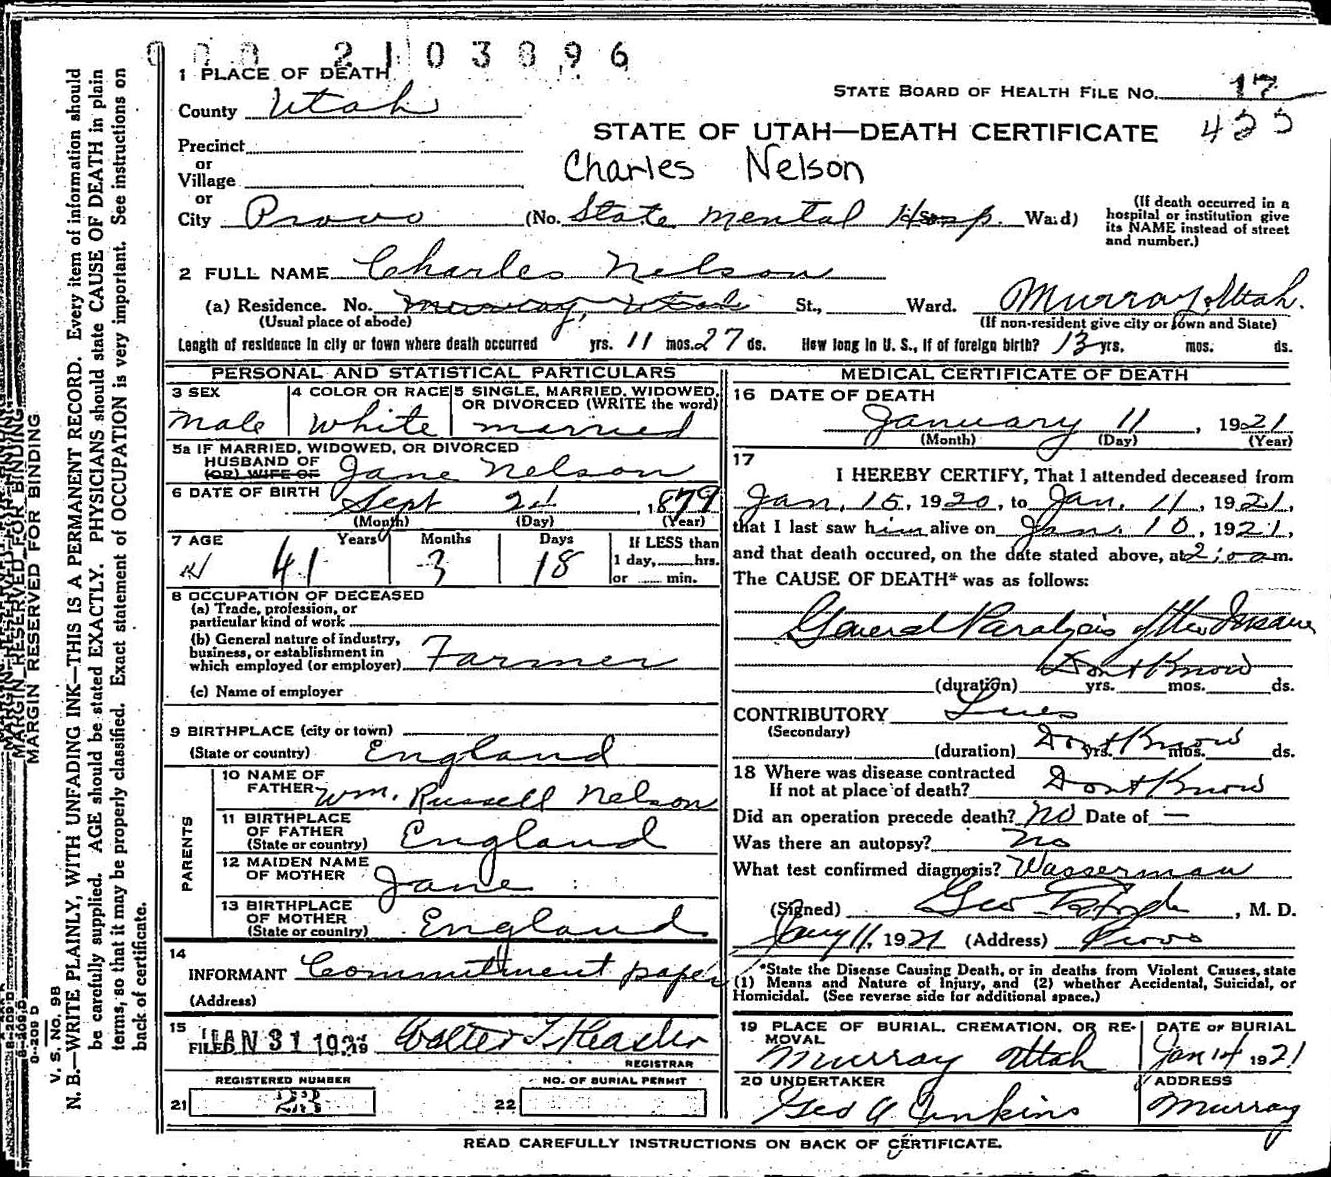 000 2103896
1 PLACE OF DEATH
County Utah
STATE BOARD OF HEALTH FILE NO. 17
STATE OF UTAH—DEATH CERTIFICATE
Charles Nelson
Precinct
or
Village
or
City Provo (No. State Mental Hosp. Ward)
(If death occurred in a
hospital or institution give
its NAME instead of street
and number.)
2 FULL NAME Charles Nelson
(a) Residence. No. Murray, Utah St., Ward. Murray, Utah.
(Usual place of abode) (If non-resident give city or town and State)
Length of residence in city or town where death occurred yrs. 11 mos. 27 ds. How long in U. S., if of foreign birth? 13 yrs. mos. ds.
PERSONAL AND STATISTICAL PARTICULARS
3 SEX
Male
4 COLOR OR RACE
White
5 SINGLE, MARRIED, WIDOWED,
OR DIVORCED (WRITE the word)
married
5a IF MARRIED, WIDOWED, OR DIVORCED
HUSBAND OF
(OR) WIFE OF Jane Nelson
6 DATE OF BIRTH Sept 24, 1879
(Month) (Day) (Year)
7 AGE Years Months Days If LESS than
1 day, hrs.
or min.
41 3 18
8 OCCUPATION OF DECEASED
(a) Trade, profession, or
particular kind of work
(b) General nature of industry,
business, or establishment in
which employed (or employer) Farmer
(c) Name of employer
9 BIRTHPLACE (city or town)
(State or country) England
PARENTS
10 NAME OF
FATHER Wm. Russell Nelson
11 BIRTHPLACE
OF FATHER
(State or country) England
12 MAIDEN NAME
OF MOTHER Jane
13 BIRTHPLACE
OF MOTHER
(State or country) England
14
INFORMANT Commitment paper
(Address)
15
FILED JAN 31 1921 Walter T Hasler
REGISTRAR
REGISTERED NUMBER
21 23
NO. OF BURIAL PERMIT
22
MEDICAL CERTIFICATE OF DEATH
16 DATE OF DEATH
January 11, 1921
(Month) (Day) (Year)
17
I HEREBY CERTIFY, That I attended deceased from
Jan. 15, 1920, to Jan. 11, 1921,
that I last saw him alive on Jan. 10, 1921,
and that death occured, on the date stated above, at 2:00 a m.
The CAUSE OF DEATH* was as follows:
General Paralysis of the Insane
Dont Know
(duration) yrs. mos. ds.
CONTRIBUTORY Lues
(Secondary)
(duration) Dont Know yrs. mos. ds.
18 Where was disease contracted
If not at place of death? Dont Know
Did an operation precede death? No Date of —
Was there an autopsy? No
What test confirmed diagnosis? Wasserman
(Signed) Geo , M. D.
Jany 11, 1921 (Address) Provo
*State the Disease Causing Death, or in deaths from Violent Causes, state
(1) Means and Nature of Injury, and (2) whether Accidental, Suicidal, or
Homicidal. (See reverse side for additional space.)
19 PLACE OF BURIAL, CREMATION, OR RE-
MOVAL
Murray Utah
DATE OF BURIAL
Jan 14 1921
20 UNDERTAKER
Geo A Jenkins
ADDRESS
Murray
READ CAREFULLY INSTRUCTIONS ON BACK OF CERTIFICATE.
MARGIN RESERVED FOR BINDING
V. S. NO. 9B
N. B.—WRITE PLAINLY, WITH UNFADING INK—THIS IS A PERMANENT RECORD. Every item of information should
be carefully supplied. AGE should be stated EXACTLY. PHYSICIANS should state CAUSE OF DEATH in plain
terms, so that it may be properly classified. Exact statement of OCCUPATION is very important. See instructions on
back of certificate.